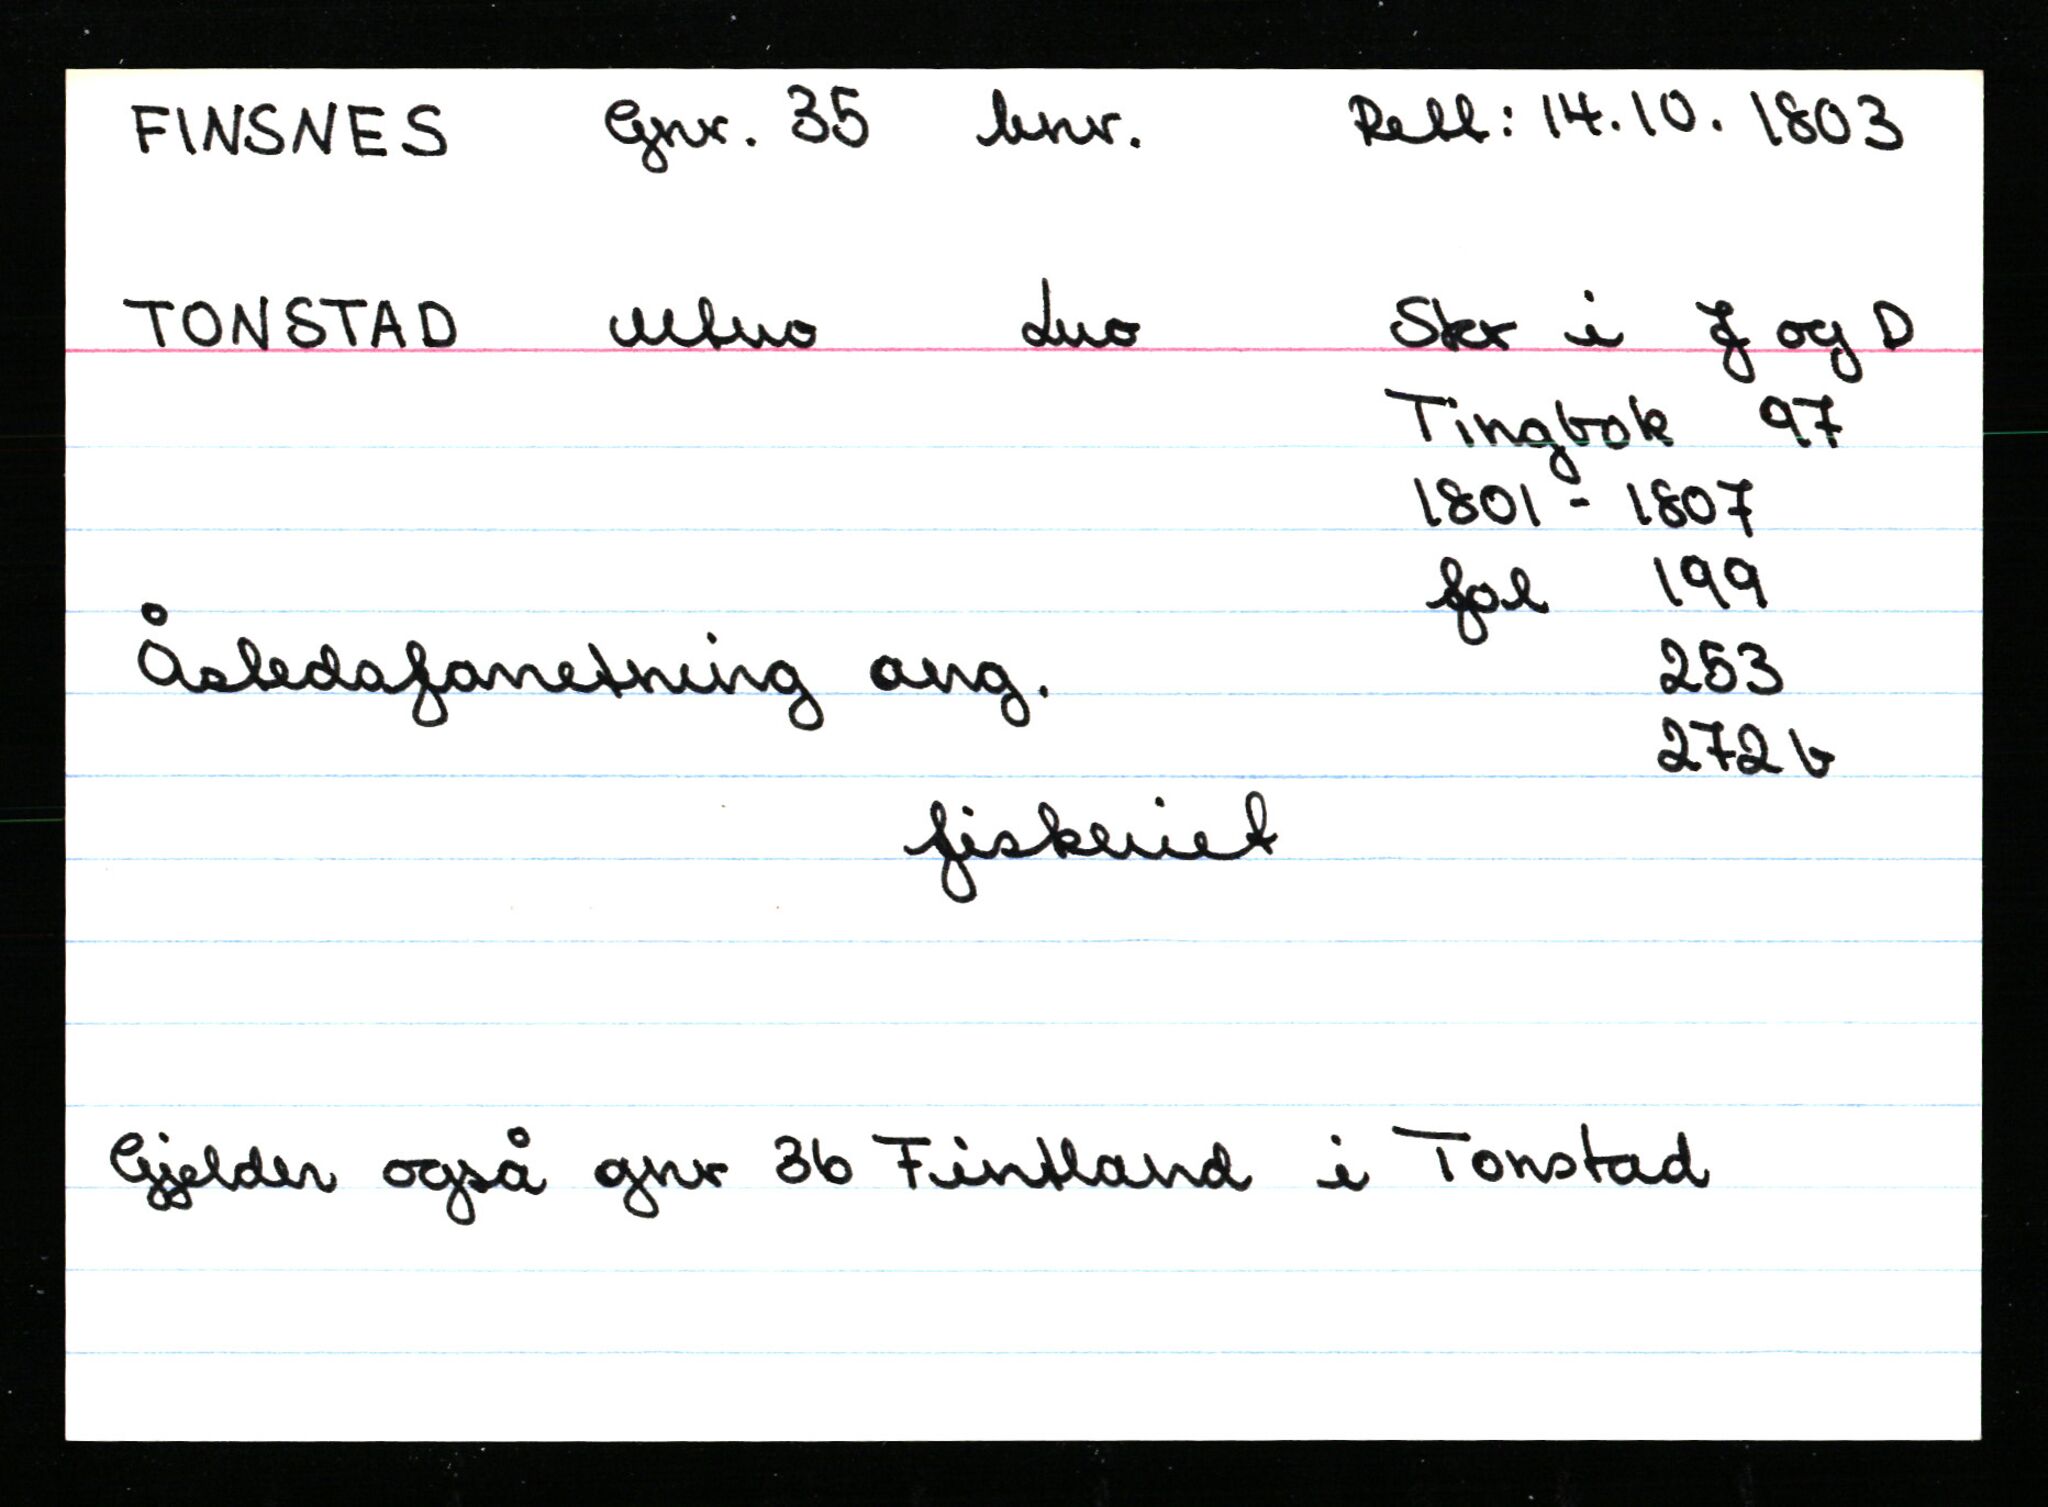 FINSNES Gnr. 35 bnr. Rell: 14.10.1803
TONSTAD Mtno Lno Skr i J og D
Tingbok 97
1801 - 1807
fol 199
Åstedsforretning ang. 253
272 b
fiskeriet
Gjelder også gnr 36 Fintland i Tonstad